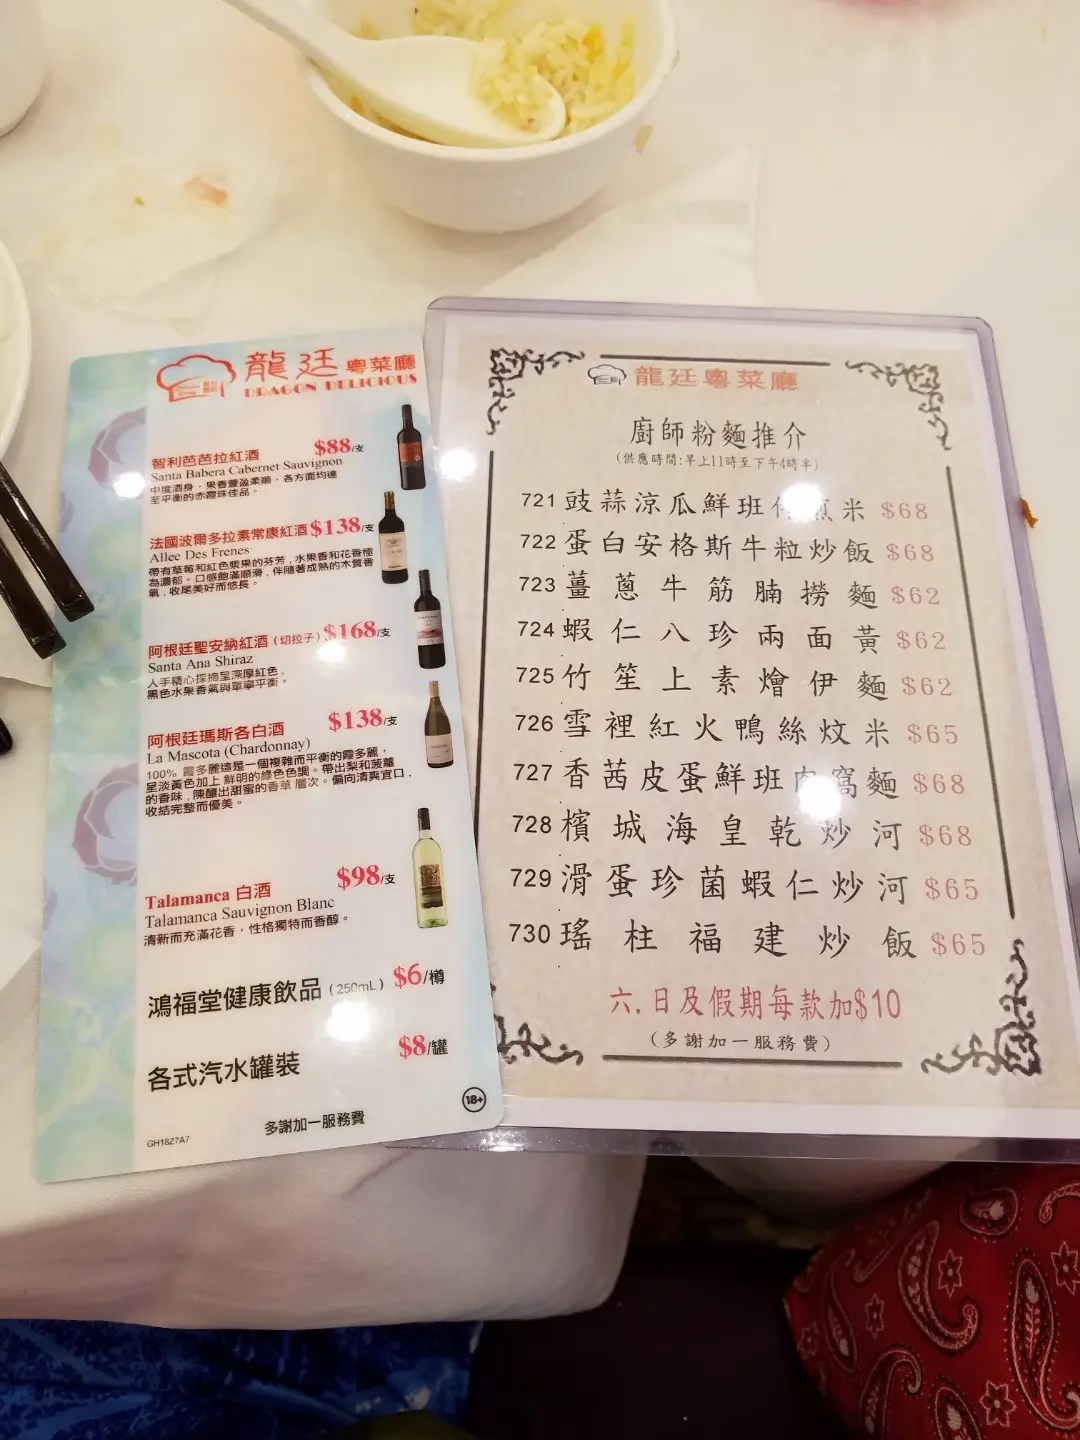 龍廷粵菜廳
DRAGON DELICIOUS
智利芭芭拉紅酒 $88/支
Santa Babera Cabernet Sauvignon
中度酒身，果香豐盈柔順，各方面均達
至平衡的赤霞珠佳品。
法國波爾多拉素常康紅酒 $138/支
Allee Des Frenes
帶有草莓和紅色漿果的芬芳，水果香和花香極
為濃郁。口感飽滿順滑，伴隨著成熟的木質香
氣，收尾美好而悠長。
阿根廷聖安納紅酒（切拉子）$168/支
Santa Ana Shiraz
人手精心採摘呈深厚紅色，
黑色水果香氣與單寧平衡。
阿根廷瑪斯各白酒 $138/支
La Mascota (Chardonnay)
100% 霞多麗這是一個複雜而平衡的霞多麗，
呈淡黃色加上鮮明的綠色色調。帶出梨和菠蘿
的香味，陳釀出甜蜜的香草層次。偏向清爽宜口，
收結完整而優美。
Talamanca 白酒 $98/支
Talamanca Sauvignon Blanc
清新而充滿花香，性格獨特而香醇。
鴻福堂健康飲品（250mL）$6/樽
各式汽水罐裝 $8/罐
多謝加一服務費
GH18Z7A7
18+
龍廷粵菜廳
廚師粉麵推介
(供應時間:早上11時至下午4時半)
721 豉蒜涼瓜鮮班煎米 $68
722 蛋白安格斯牛粒炒飯 $68
723 薑蔥牛筋腩撈麵 $62
724 蝦仁八珍兩面黃 $62
725 竹笙上素燴伊麵 $62
726 雪裡紅火鴨絲炆米 $65
727 香茜皮蛋鮮班肉窩麵 $68
728 檳城海皇乾炒河 $68
729 滑蛋珍菌蝦仁炒河 $65
730 瑤柱福建炒飯 $65
六.日及假期每款加$10
(多謝加一服務費)